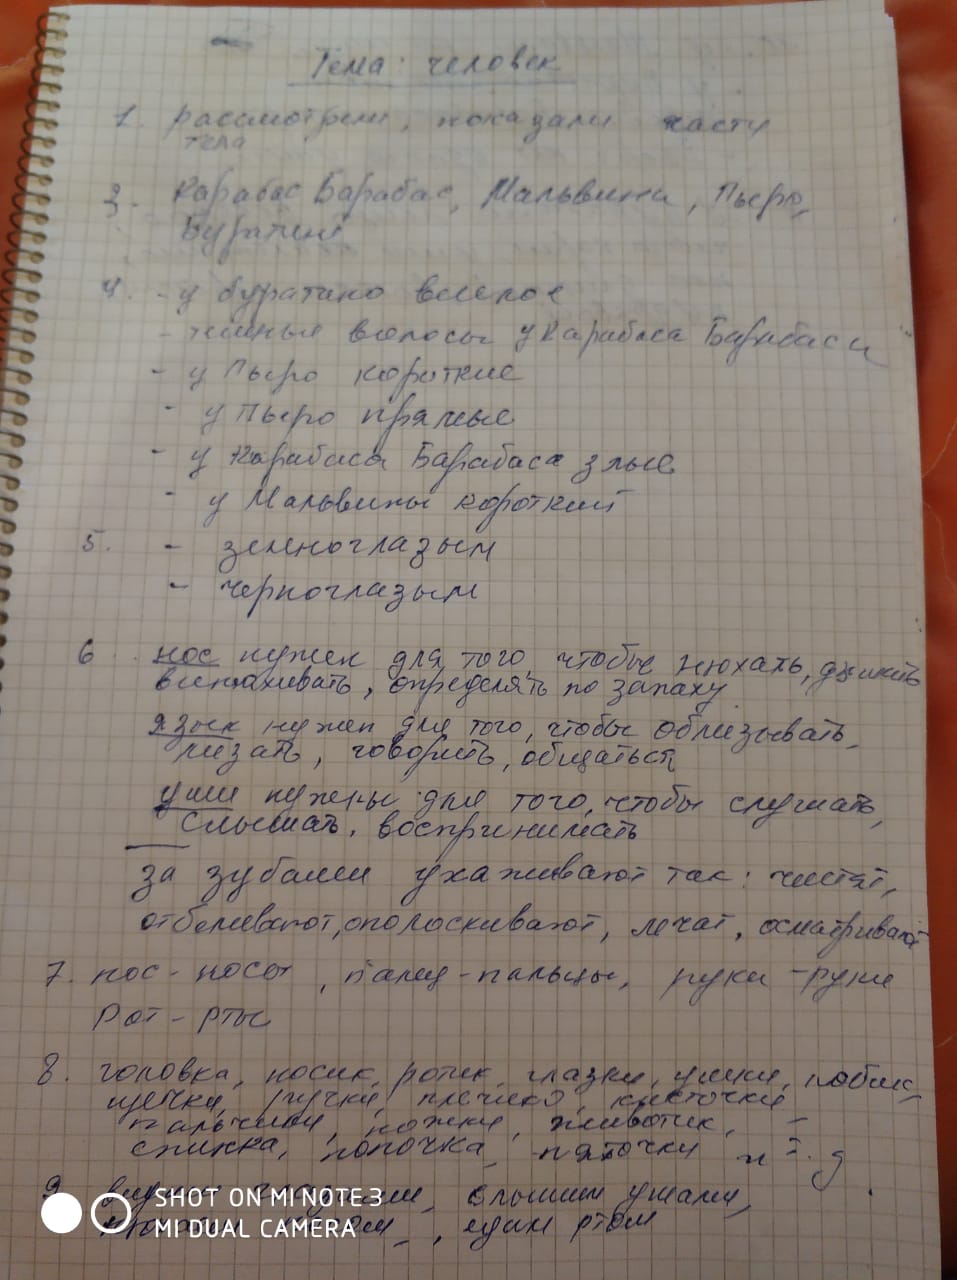 Тема: человек
1. рассмотрели, показали части
тела
3. Карабас Барабас, Мальвина, Пьеро,
Буратино
4. - у буратино веселое
- темные волосы у Карабаса Барабаса
- у Пьеро короткие
- у Пьеро прямые
- у Карабаса Барабаса злые
- у Мальвины короткий
5. - зеленоглазым
- черноглазым
6 нос нужен для того чтобы нюхать, дышать
вынюхивать, определять по запаху
язык нужен для того, чтобы облизывать,
лизать, говорить, общаться
уши нужны для того, чтобы слушать,
слышать, воспринимать
за зубами ухаживают так: чистят,
отбеливают, ополоскивают, лечат, осматривают
7. нос - носы, палец - пальцы, руки - руки
рот - рты
8. головка, носик, ротик, глазки, ушки, лобик,
щечки, ручки, плечико, кисточки,
пальчики, ножки, животик,
спинка, попочка, пяточки и т. д.
9. глазами, слышим ушами,
едим ртом
SHOT ON MI NOTE 3
MI DUAL CAMERA